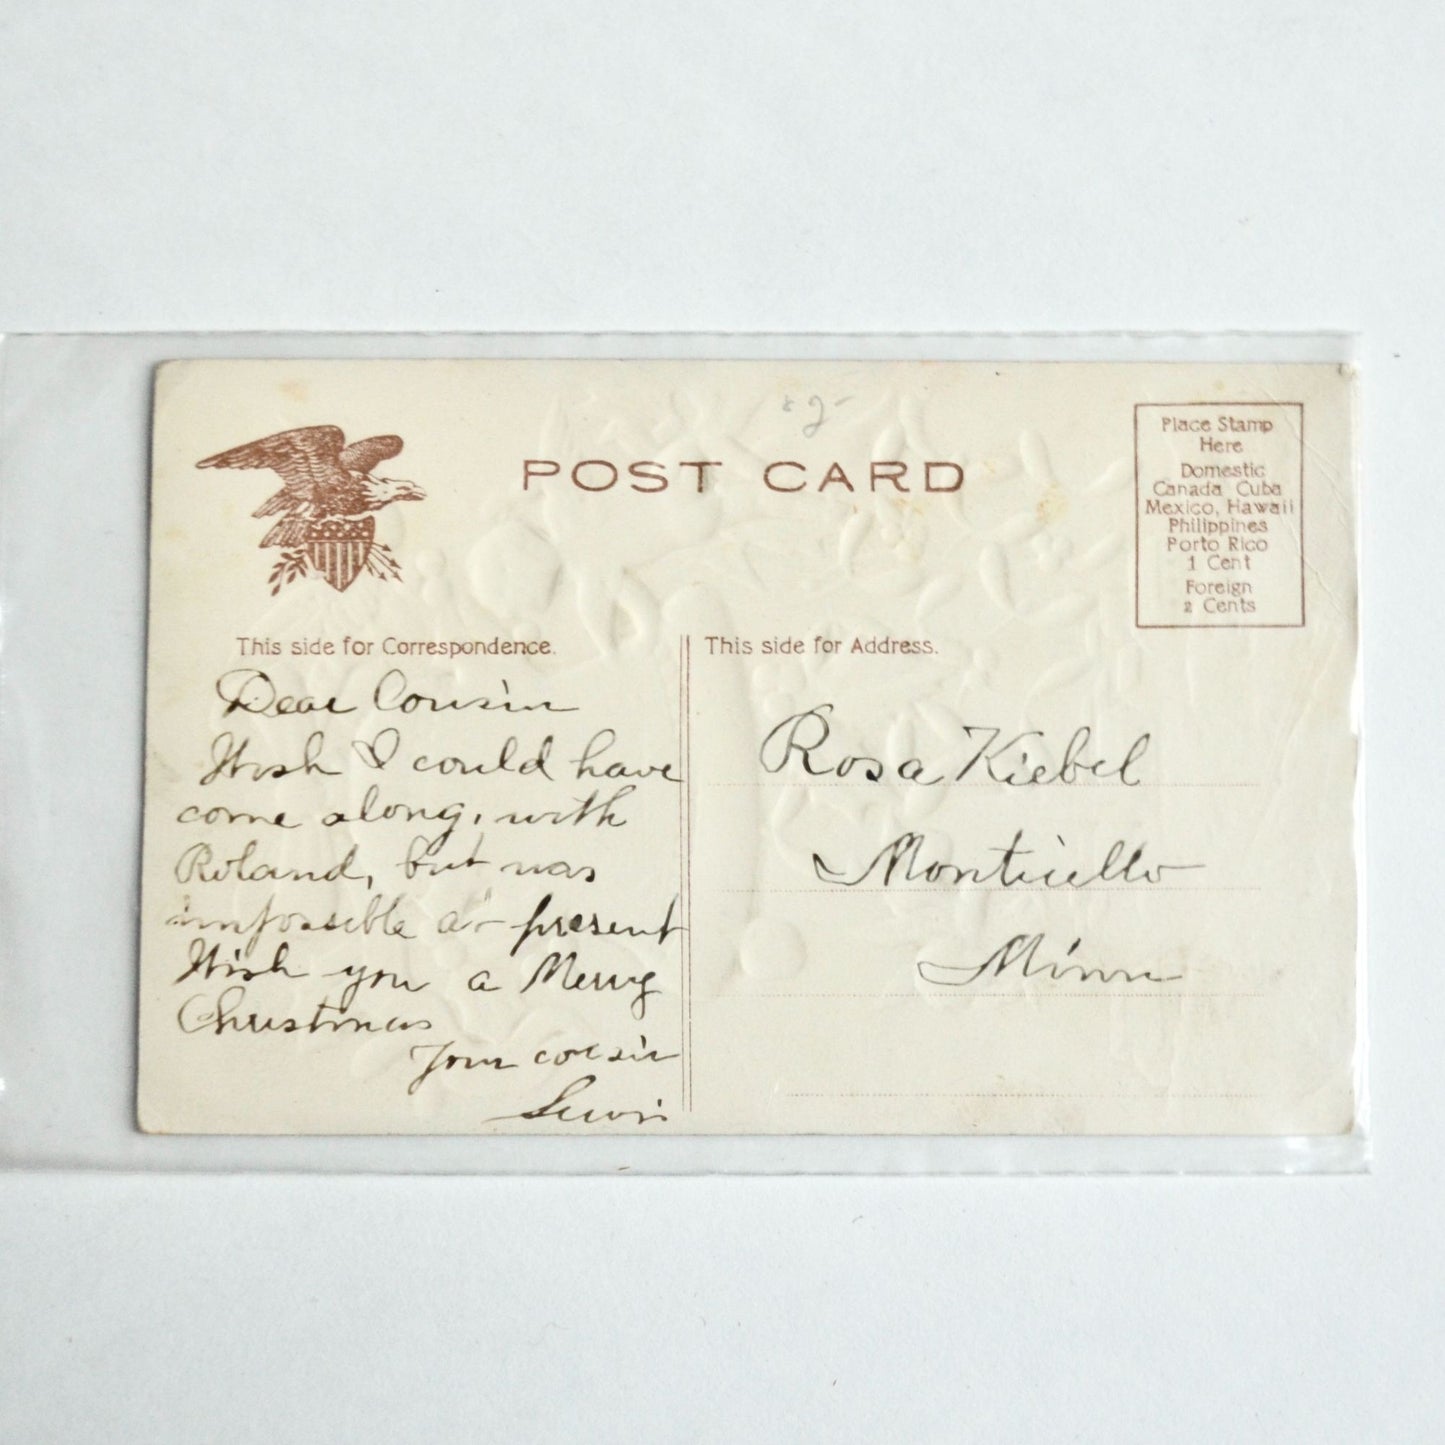 POST CARD
Place Stamp
Here
Domestic
Canada Cuba
Mexico, Hawaii
Philippines
Porto Rico
1 Cent
Foreign
2 Cents
This side for Correspondence.
Dear Cousin
Wish I could have
come along, with
Roland, but was
impossible at present
Wish you a Merry
Christmas
Your cousin
Lewis
This side for Address.
Rosa Kiebel
Monticello
Minn